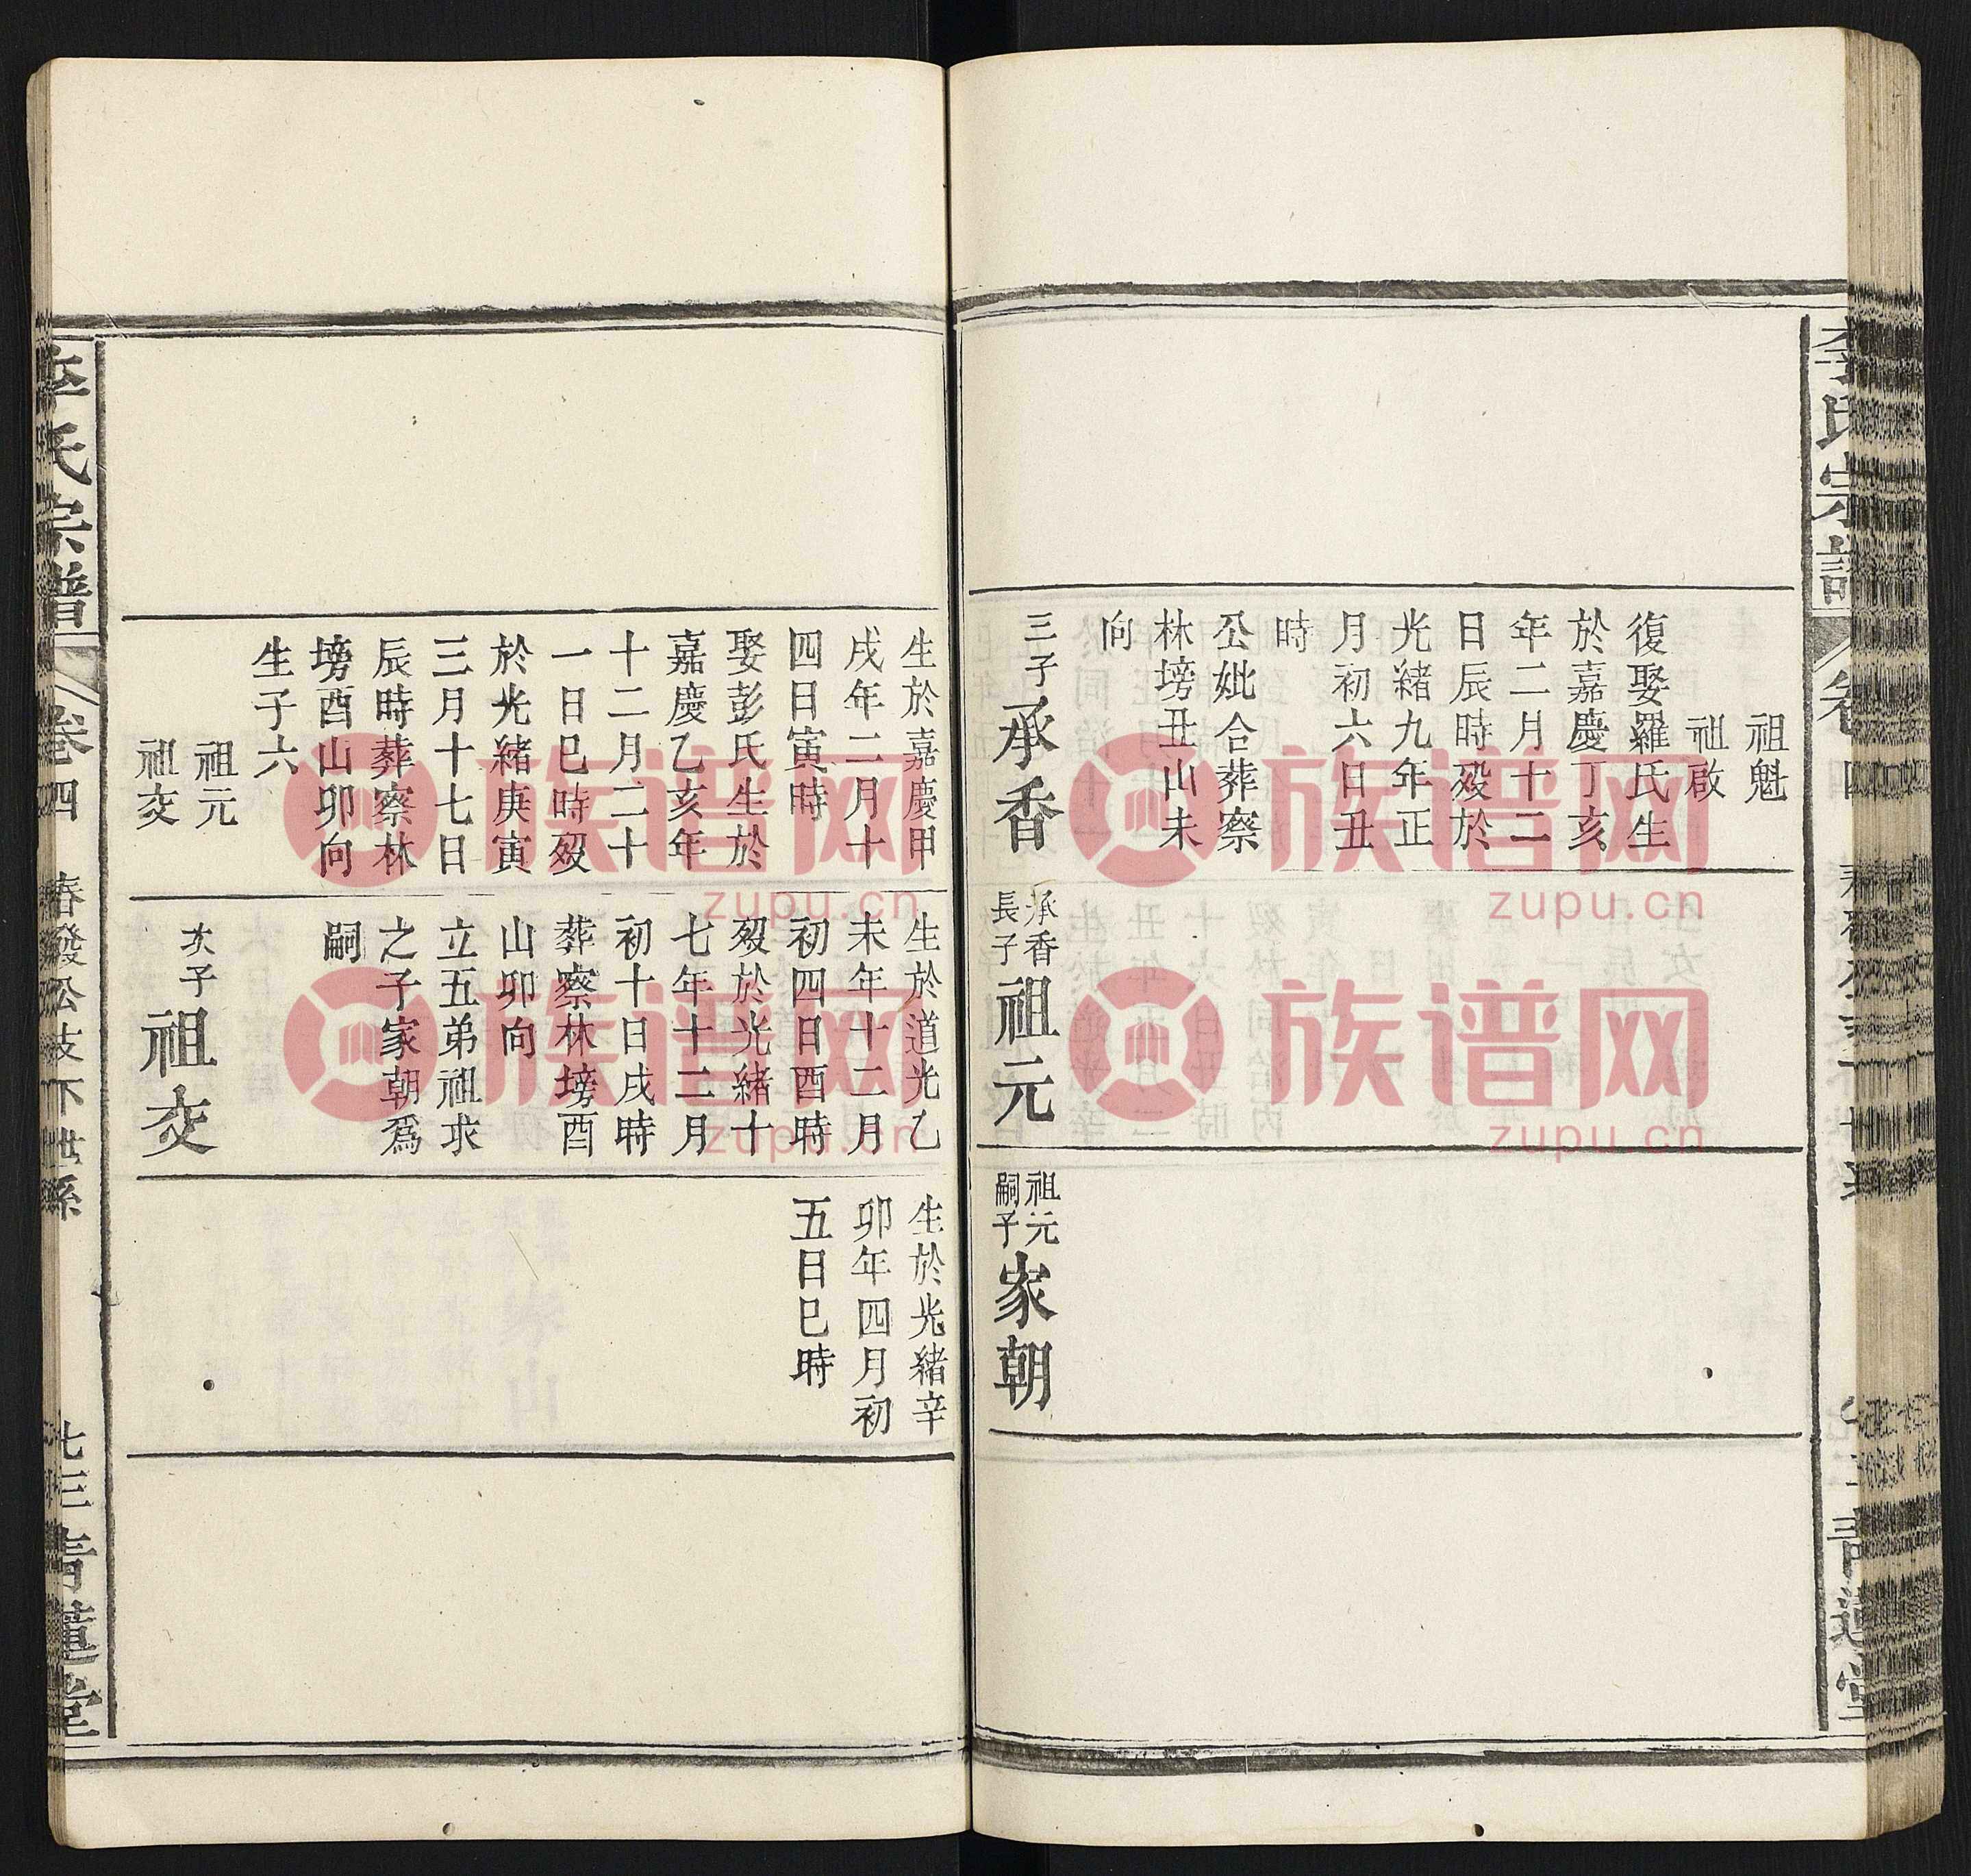 祖魁
祖啟
復娶羅氏生
於嘉慶丁亥
年二月十二
日辰時殁於
光緒九年正
月初六日丑
時
公妣合葬察
林塝丑山未
向
三子承香
承香
長子祖元
祖元
嗣子家朝
生於嘉慶甲
戌年二月十
四日寅時
娶彭氏生於
嘉慶乙亥年
十二月二十
一日巳時殁
於光緒庚寅
三月十七日
辰時葬察林
塝酉山卯向
生子六
祖元
祖交
生於道光乙
未年十二月
初四日酉時
殁於光緒十
七年十二月
初十日戌時
葬察林塝酉
山卯向
立五弟祖求
之子家朝爲
嗣
次子祖交
生於光緒辛
卯年四月初
五日巳時
李氏宗譜
卷四
春發公支下世系
七三
青蓮堂
族谱网
zupu.cn
族谱网
zupu.cn
族谱网
zupu.cn
族谱网
zupu.cn